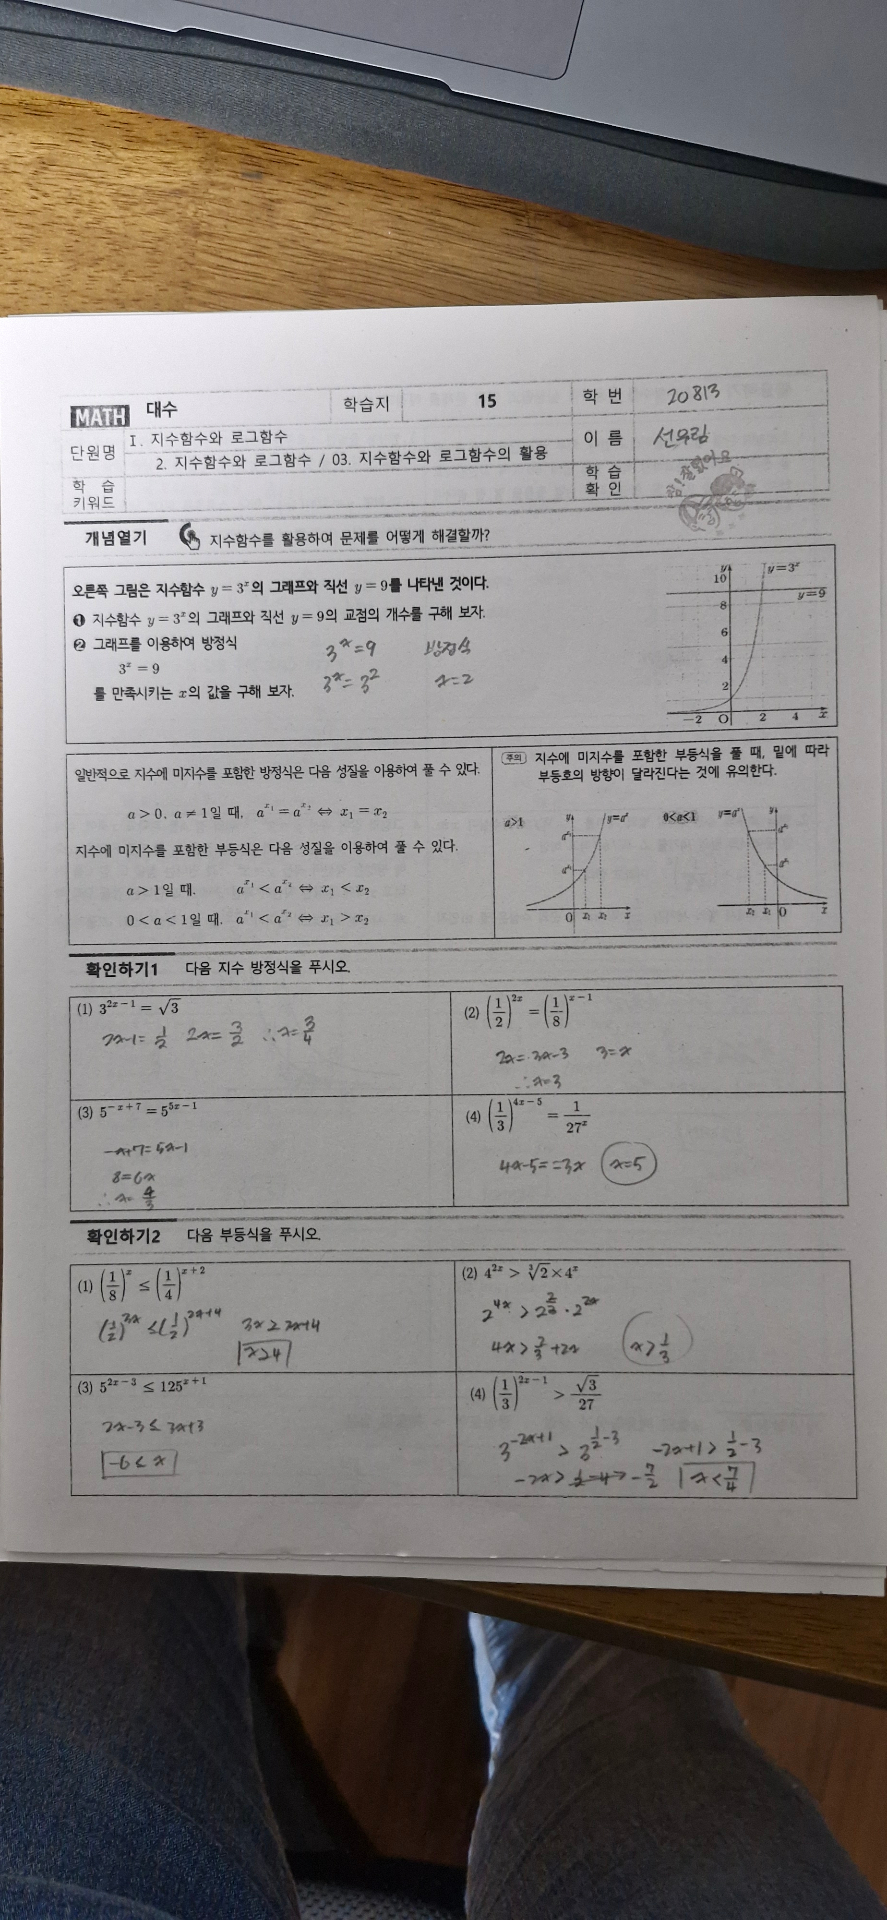 MATH 대수 학습지 15 학 번 20813
단원명 Ⅰ. 지수함수와 로그함수 이 름 선우림
2. 지수함수와 로그함수 / 03. 지수함수와 로그함수의 활용
학 습 키워드 학 습 확 인
참! 잘했어요
개념열기 지수함수를 활용하여 문제를 어떻게 해결할까?
오른쪽 그림은 지수함수 y=3^x의 그래프와 직선 y=9를 나타낸 것이다.
❶ 지수함수 y=3^x의 그래프와 직선 y=9의 교점의 개수를 구해 보자.
❷ 그래프를 이용하여 방정식
3^x=9
를 만족시키는 x의 값을 구해 보자.
3^x=9 방정식
3^x=3^2 x=2
y y=3^x
10
y=9
8
6
4
2
-2 O 2 4 x
일반적으로 지수에 미지수를 포함한 방정식은 다음 성질을 이용하여 풀 수 있다.
a>0, a≠1일 때, a^{x_1}=a^{x_2} ⇔ x_1=x_2
지수에 미지수를 포함한 부등식은 다음 성질을 이용하여 풀 수 있다.
a>1일 때, a^{x_1}<a^{x_2} ⇔ x_1<x_2
0<a<1일 때, a^{x_1}<a^{x_2} ⇔ x_1>x_2
주의 지수에 미지수를 포함한 부등식을 풀 때, 밑에 따라
부등호의 방향이 달라진다는 것에 유의한다.
a>1 y y=a^x
a^{x_2}
a^{x_1}
0 x_1 x_2 x
0<a<1 y=a^x y
a^{x_2}
a^{x_1}
x_2 x_1 0 x
확인하기1 다음 지수 방정식을 푸시오.
(1) 3^{2x-1}=√3
2x-1=1/2 2x=3/2 ∴x=3/4
(2) (1/2)^{2x}=(1/8)^{x-1}
2x=3x-3 3=x
∴x=3
(3) 5^{-x+7}=5^{5x-1}
-x+7=5x-1
8=6x
∴x=4/3
(4) (1/3)^{4x-5}=1/27^x
4x-5=-3x x=5
확인하기2 다음 부등식을 푸시오.
(1) (1/8)^x≤(1/4)^{x+2}
(1/2)^{3x}≤(1/2)^{2x+4} 3x≥2x+4
x≥4
(2) 4^{2x}>∛2×4^x
2^{4x}>2^{2/3}·2^{2x}
4x>2/3+2x x>1/3
(3) 5^{2x-3}≤125^{x+1}
2x-3≤3x+3
-6≤x
(4) (1/3)^{2x-1}>√3/27
3^{-2x+1}>3^{1/2-3} -2x+1>1/2-3
-2x>1/2-4>-7/2 x<7/4